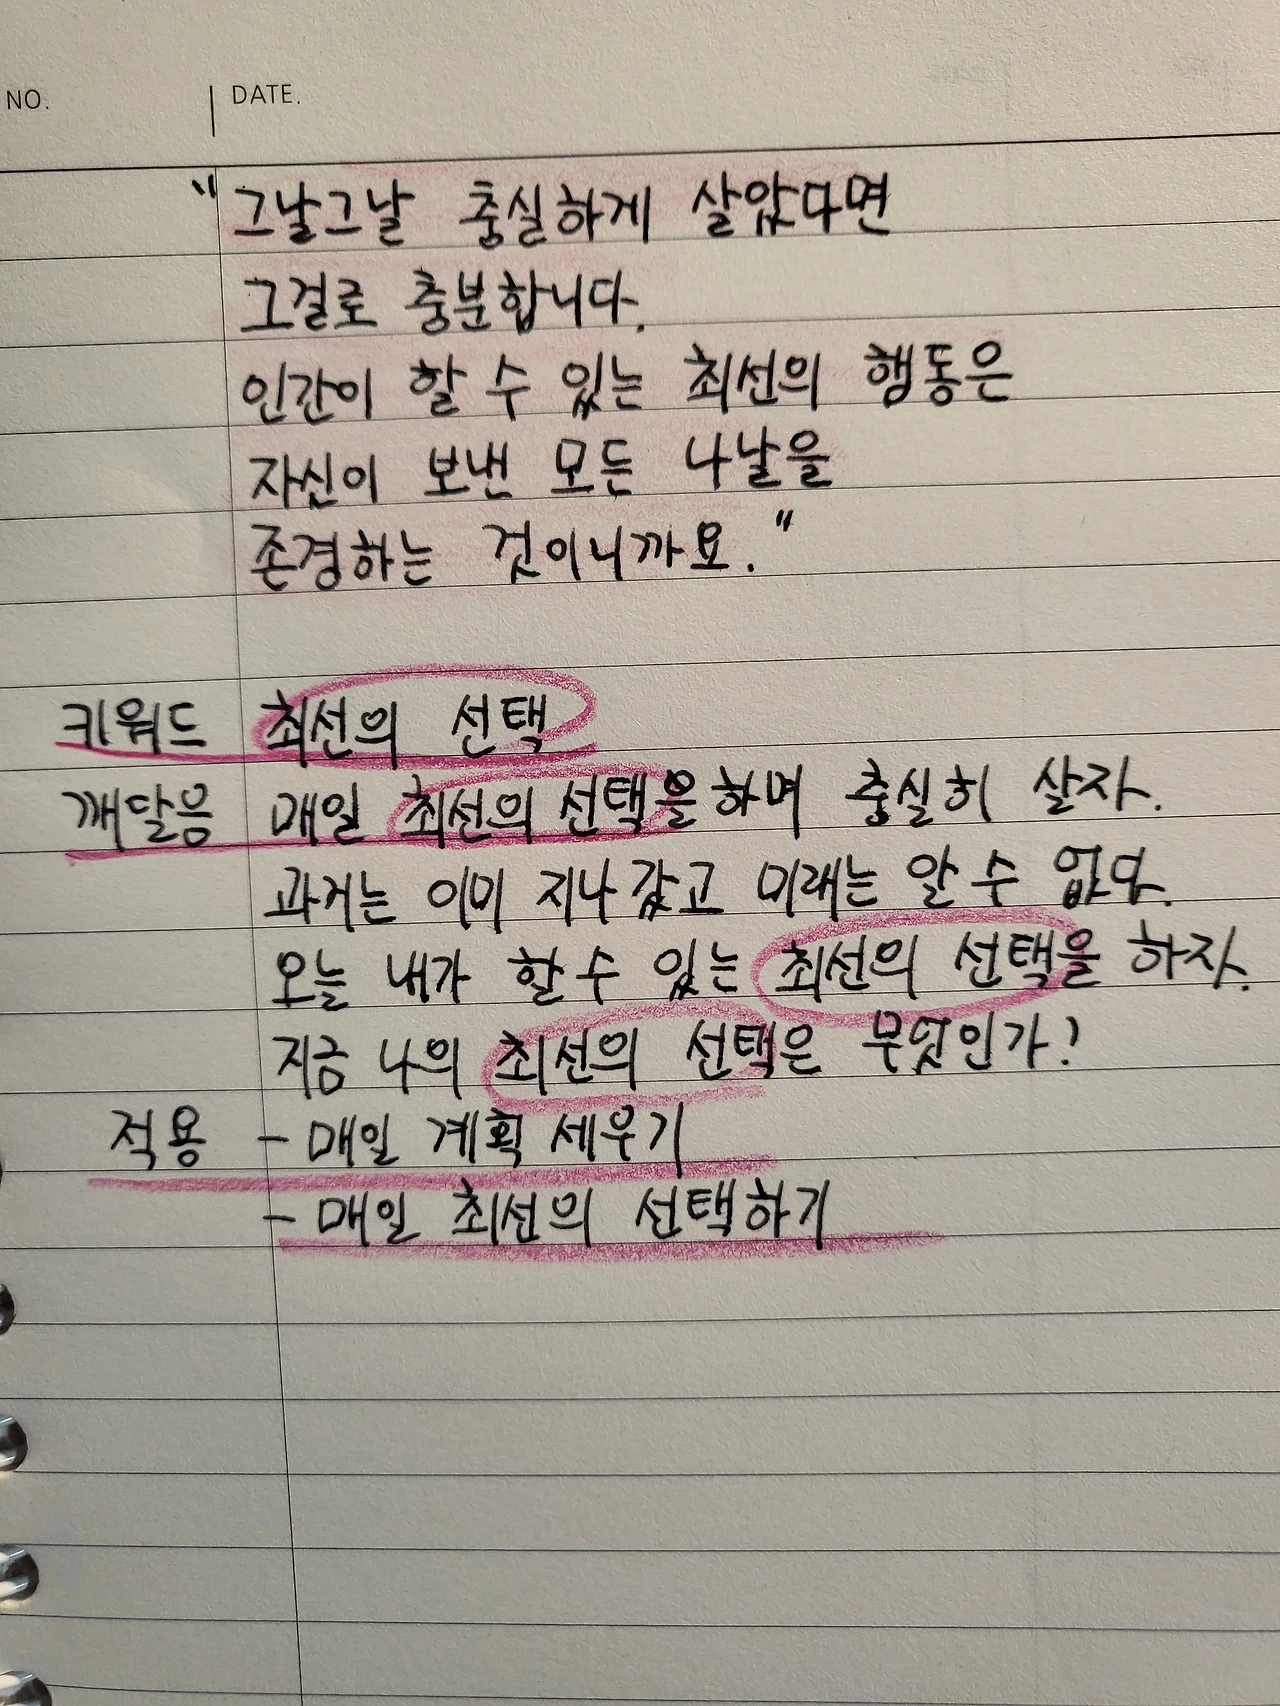 NO. DATE.
"그날그날 충실하게 살았다면
그걸로 충분합니다.
인간이 할 수 있는 최선의 행동은
자신이 보낸 모든 나날을
존경하는 것이니까요."
키워드 최선의 선택
깨달음 매일 최선의 선택을 하며 충실히 살자.
과거는 이미 지나갔고 미래는 알 수 없다.
오늘 내가 할 수 있는 최선의 선택을 하자.
지금 나의 최선의 선택은 무엇인가?
적용 - 매일 계획 세우기
- 매일 최선의 선택하기